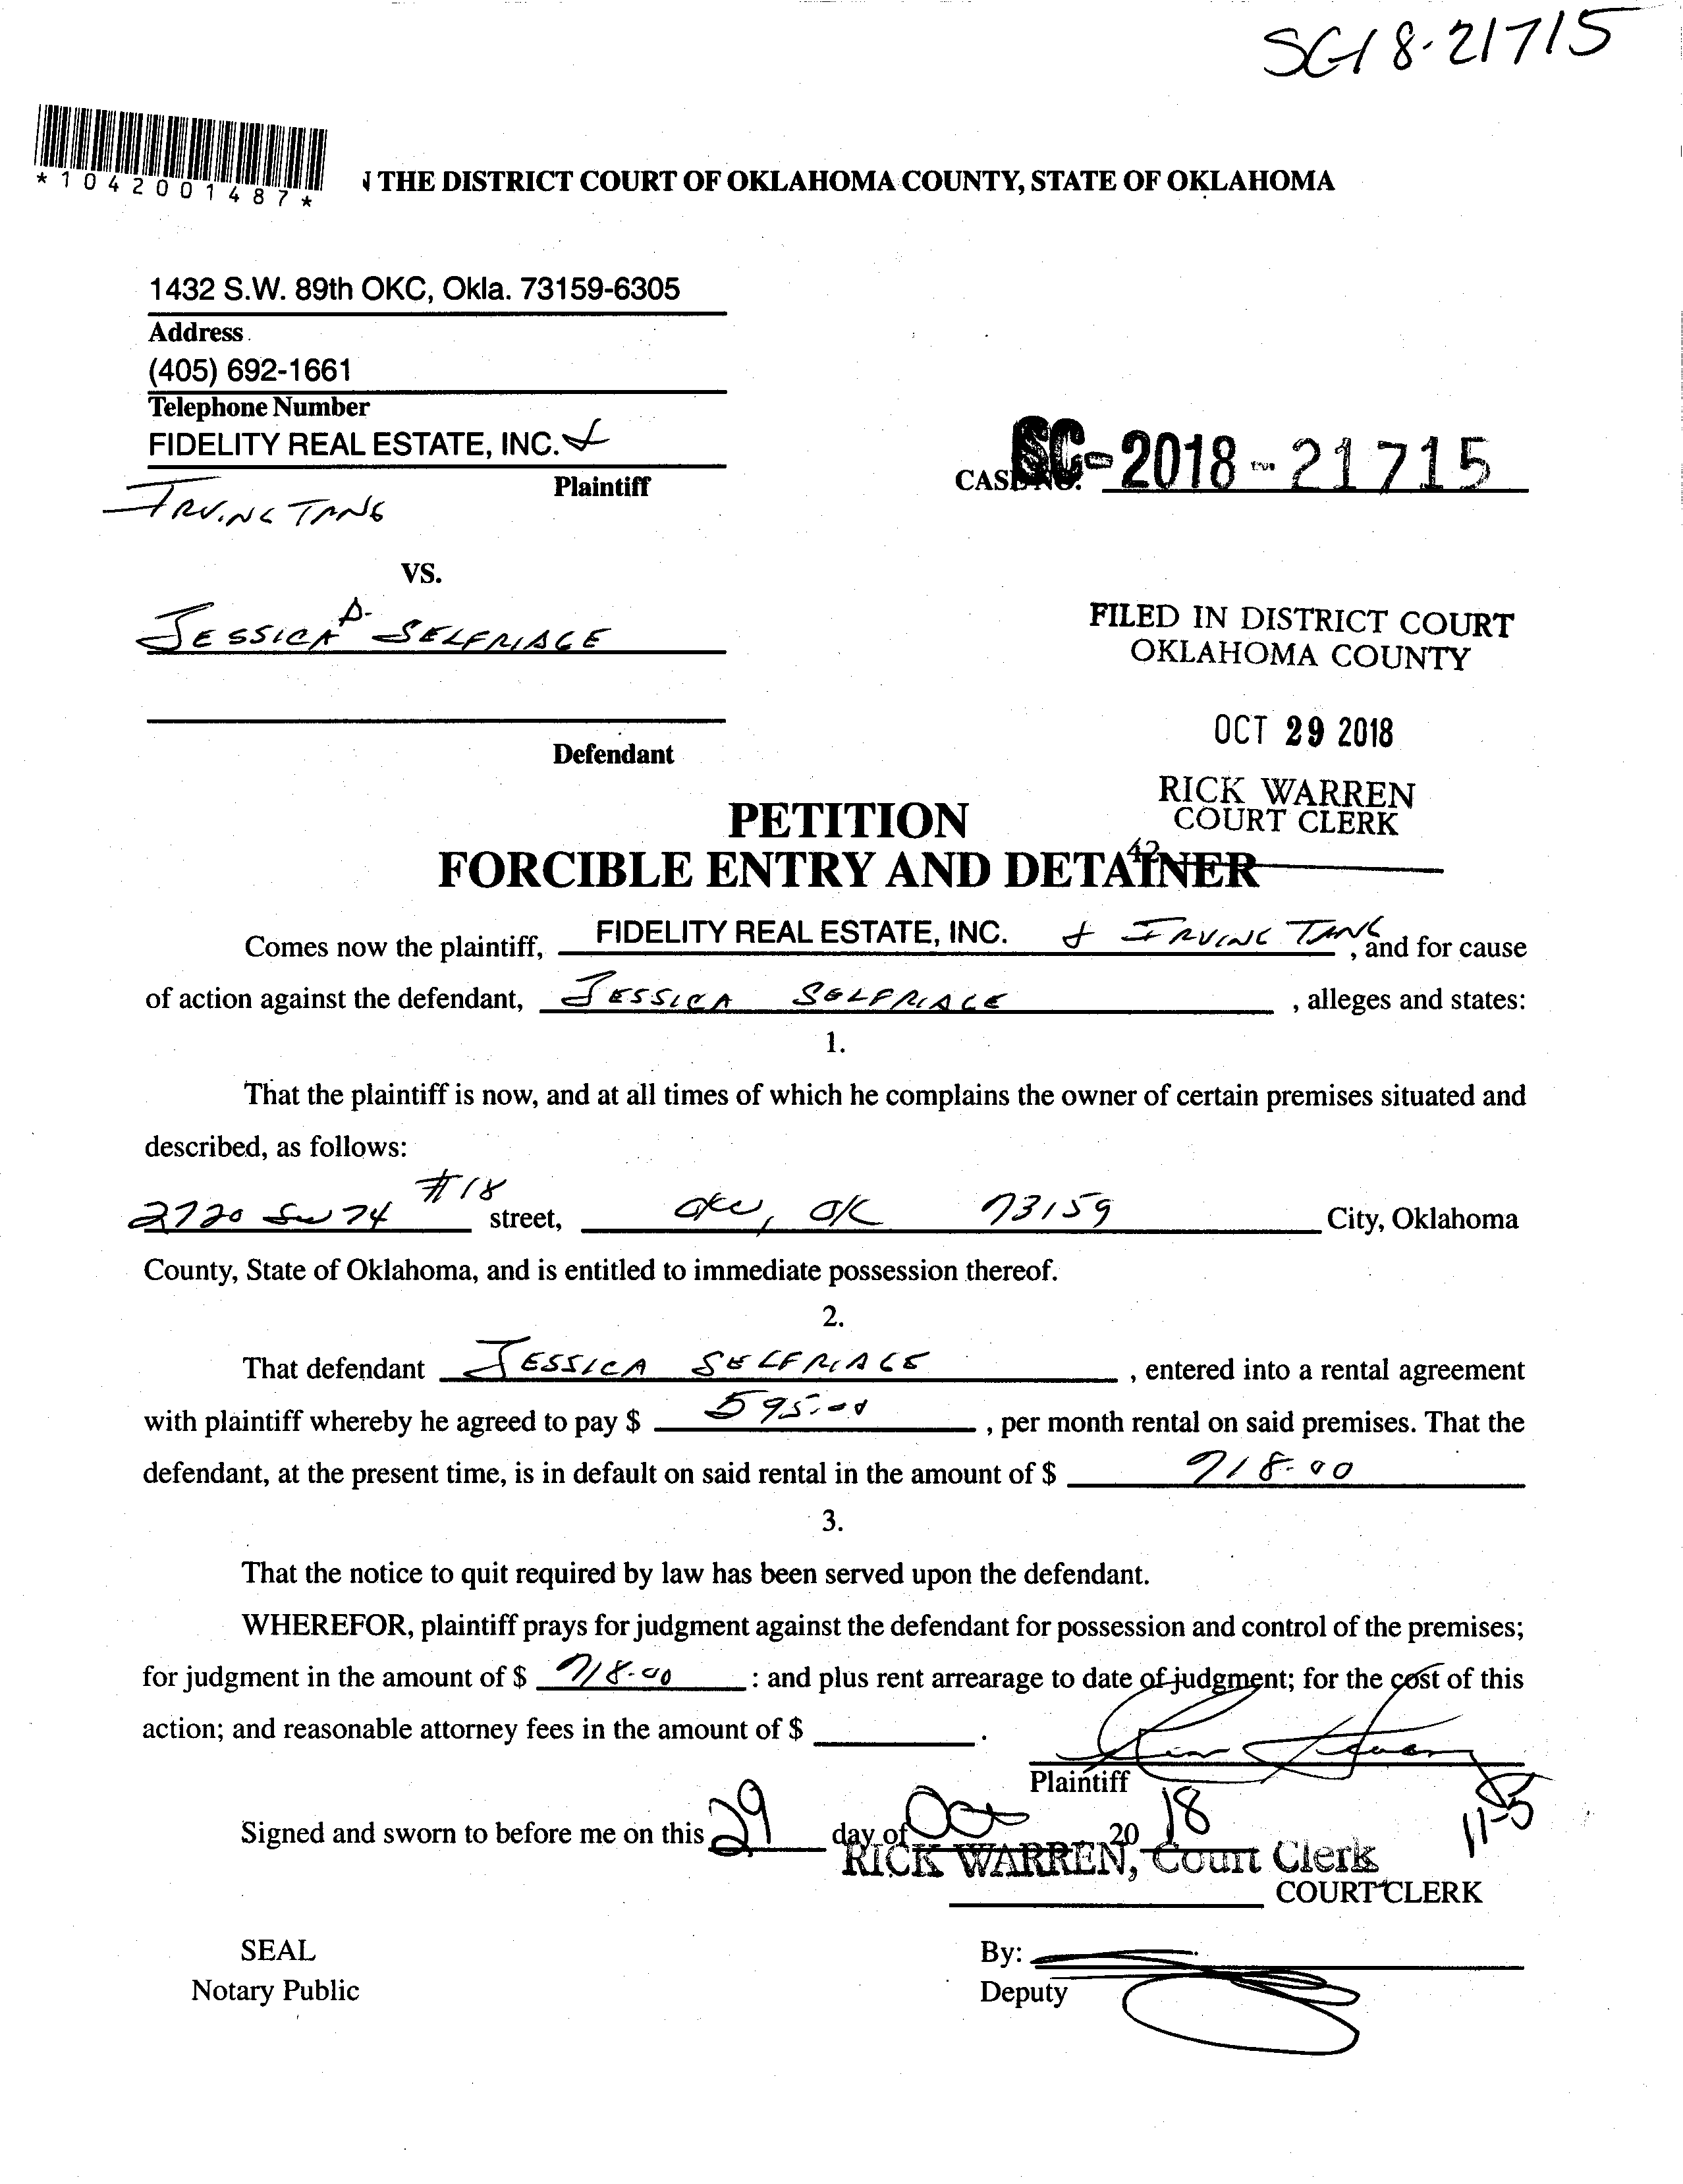 SC18-21715
*1042001487*
N THE DISTRICT COURT OF OKLAHOMA COUNTY, STATE OF OKLAHOMA
1432 S.W. 89th OKC, Okla. 73159-6305
Address
(405) 692-1661
Telephone Number
FIDELITY REAL ESTATE, INC. &
Plaintiff
IRVING TANG
CASE NO. SC-2018-21715
VS.
JESSICA D. SELFRIDGE
FILED IN DISTRICT COURT
OKLAHOMA COUNTY
OCT 29 2018
Defendant
RICK WARREN
COURT CLERK
42
PETITION
FORCIBLE ENTRY AND DETAINER
Comes now the plaintiff, FIDELITY REAL ESTATE, INC. & IRVING TANG, and for cause
of action against the defendant, JESSICA SELFRIDGE, alleges and states:
1.
That the plaintiff is now, and at all times of which he complains the owner of certain premises situated and
described, as follows:
2720 SW 74 #18 street, OKC, OK 73159 City, Oklahoma
County, State of Oklahoma, and is entitled to immediate possession thereof.
2.
That defendant JESSICA SELFRIDGE, entered into a rental agreement
with plaintiff whereby he agreed to pay $ 595.00, per month rental on said premises. That the
defendant, at the present time, is in default on said rental in the amount of $ 718.00
3.
That the notice to quit required by law has been served upon the defendant.
WHEREFOR, plaintiff prays for judgment against the defendant for possession and control of the premises;
for judgment in the amount of $ 718.00 : and plus rent arrearage to date of judgment; for the cost of this
action; and reasonable attorney fees in the amount of $ .
Plaintiff
11-5
Signed and sworn to before me on this 29 day of Oct 20 18
RICK WARREN, Court Clerk
COURT CLERK
SEAL
By:
Notary Public
Deputy